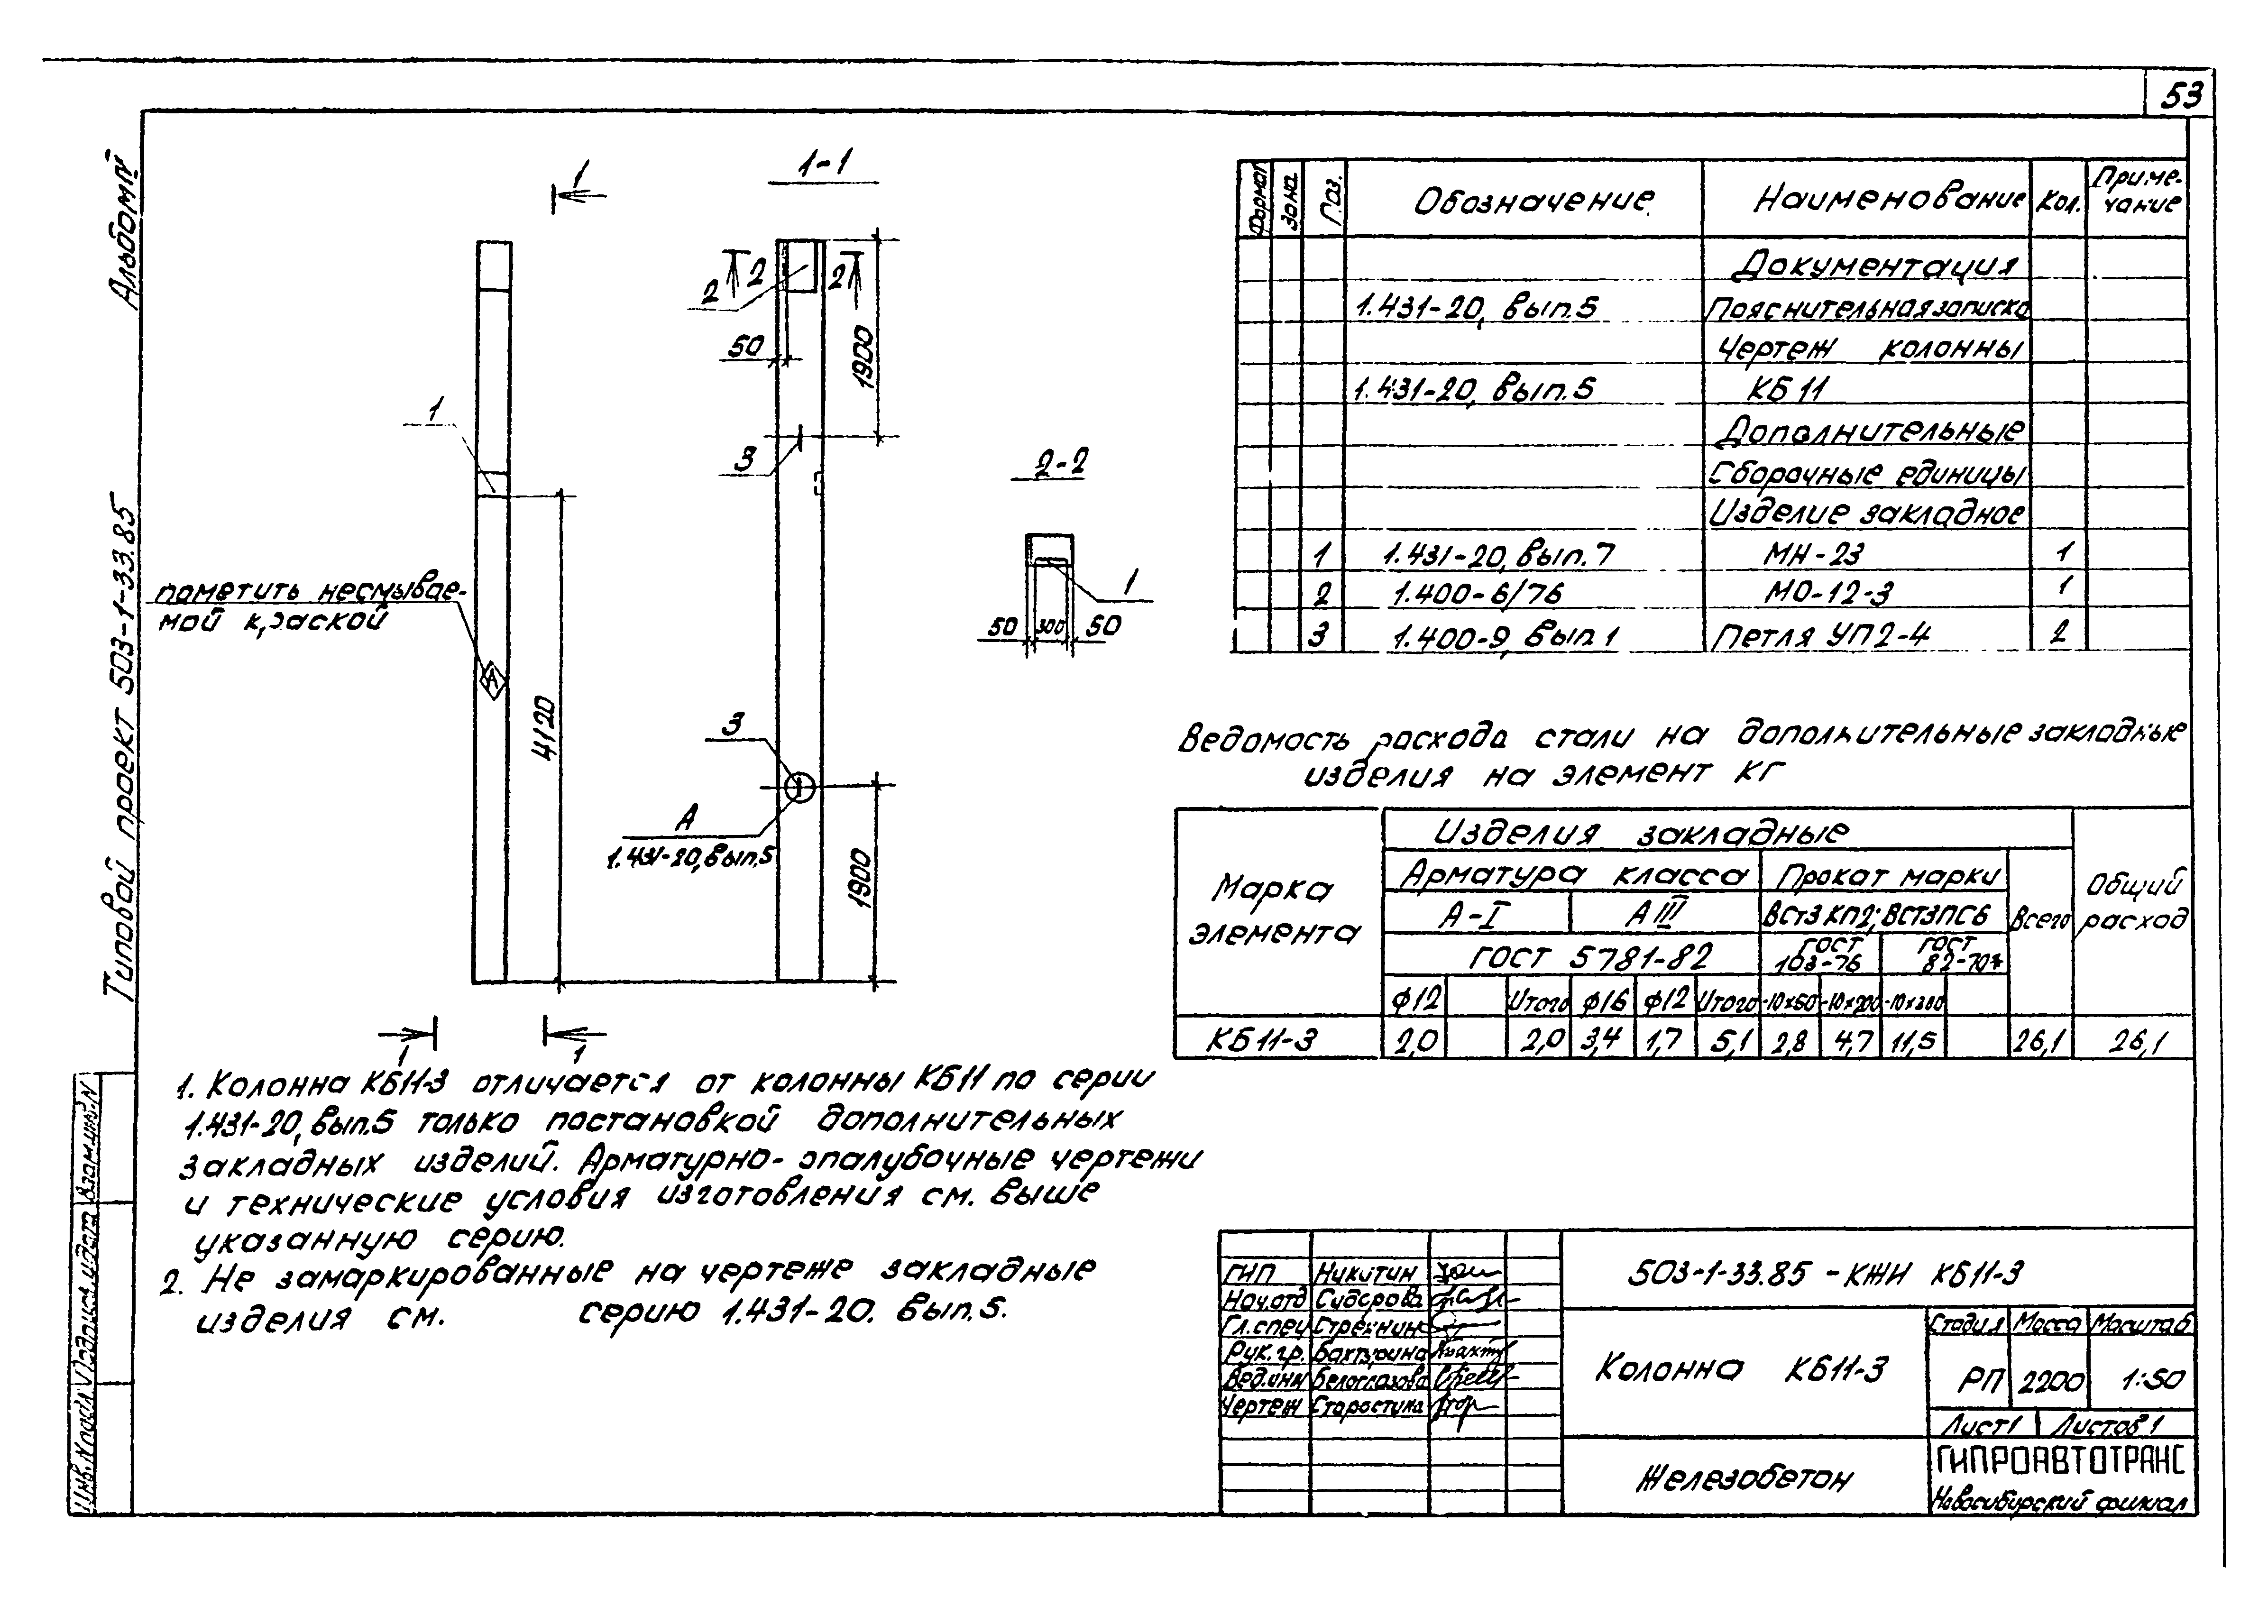 53
Альбом IV
Типовой проект 503-1-33.85
1
1-1
2
2
2
50
1900
1
3
2-2
пометить несмывае-
мой краской
А
4120
1
50
300
50
3
А
1.431-20, вып.5
1900
1
1
Формат Зона Поз. Обозначение Наименование Кол. Приме-
чание
Документация
1.431-20, вып.5 Пояснительная записка
Чертеж колонны
1.431-20, вып.5 КБ 11
Дополнительные
Сборочные единицы
Изделие закладное
1 1.431-20, вып.7 МН-23 1
2 1.400-6/76 МО-12-3 1
3 1.400-9, вып 1 Петля УП2-4 2
Ведомость расхода стали на дополнительные закладные
изделия на элемент кг
Марка
элемента
Изделия закладные
Общий
расход
Арматура класса Прокат марки
Всего
А-I А III ВСт3 КП2; ВСТ3ПС6
ГОСТ 5781-82 ГОСТ
103-76 ГОСТ
82-70*
ф12 Итого ф16 ф12 Итого -10х50 -10х200 -10х300
КБ11-3 2,0 2,0 3,4 1,7 5,1 2,8 4,7 11,5 26,1 26,1
1. Колонна КБ11-3 отличается от колонны КБ11 по серии
1.431-20, вып.5 только постановкой дополнительных
закладных изделий. Арматурно-опалубочные чертежи
и технические условия изготовления см. выше
указанную серию.
2. Не замаркированные на чертеже закладные
изделия см. серию 1.431-20. вып.5.
Инв.N подл. Подпись и дата Взам.инв.N
ГИП Никитин
Нач.отд Сидорова
Гл.спец Стрехнин
Рук.гр. Бахтурина
Вед.инж Белоглазова
Чертеж Старостина
503-1-33.85 -КЖИ КБ11-3
Колонна КБ11-3
Стадия Масса Масштаб
РП 2200 1:50
Лист 1 Листов 1
Железобетон
ГИПРОАВТОТРАНС
Новосибирский филиал